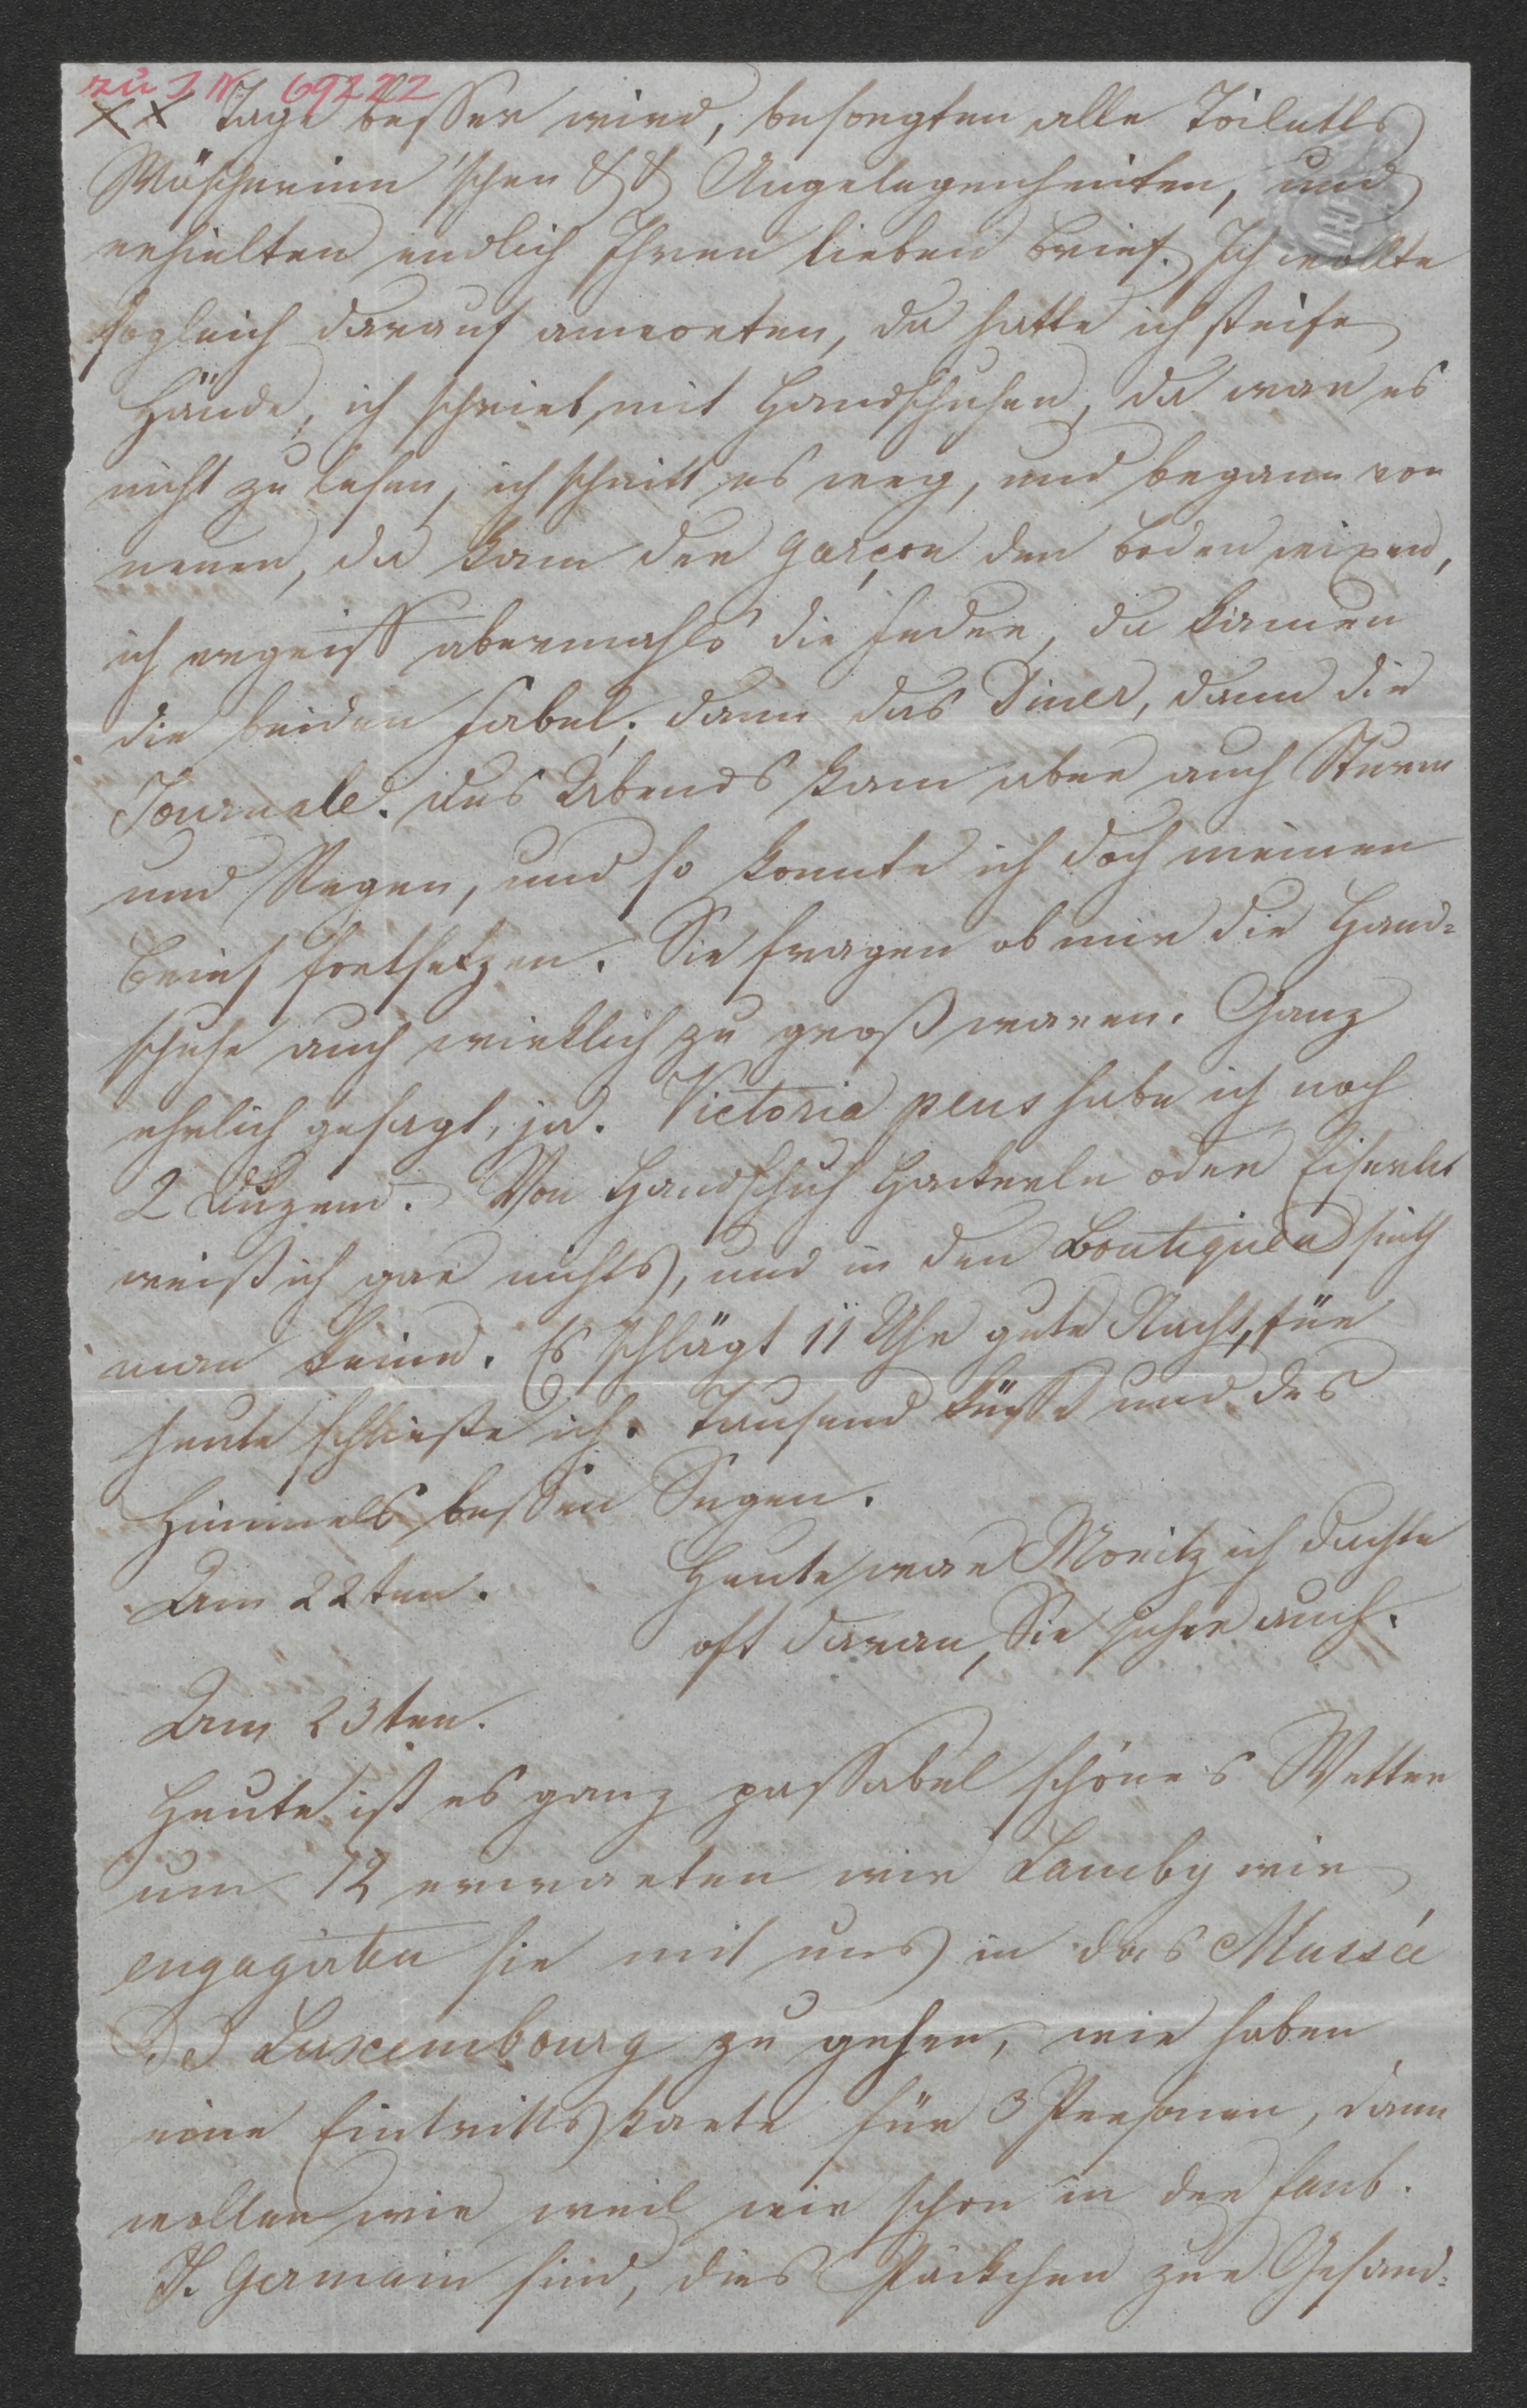 zu I.N. 69222
XX Tage besser wird, besorgten alle Toiletts
Wäscherinn'schen && Angelegenheiten, und
erhielten endlich Ihren lieben Brief. Ich wollte
sogleich darauf anworten, da hatte ich steife
Hände, ich schrieb mit Handschuhen, da war es
nicht zu lesen, ich schnitt es weg, und begann von
neuen, da kam der Garçon den Boden wixen,
ich ergriff abermahls die Feder, da kamen
die beiden Habel, dann das Diner, dann die
Journale. Des Abends kam aber auch Sturm
und Regen, und so konnte ich doch meinen
Brief fortsetzen. Sie fragen ob mir die Hand=
schuhe auch wirklich zu groß waren. Ganz
ehrlich gesagt, ja. Victoria pens habe ich noch
2 Duzend. Von Handschuh Hackerln oder
weiß ich gar nichts, und in den Boutiquen sieht
man keine. Es schlägt 11 Uhr gute Nacht, für
heute schließe ich. Tausend Küsse und des
Himmels besten Segen.
Am 22ten. Heute war Moritz ich dachte
oft daran, Sie sicher auch.
Am 23ten.
Heute ist es ganz passabel schönes Wetter
um 12 erwarten wir Lamby wir
engagirten sie mit uns in das Musée
de Luxembourg zu gehen, wir haben
eine Eintrittskarte für 3 Personen, dann
wollen wir weil wir schon in der Faub.
St. Germain sind, dies Päckchen zur Gesand=